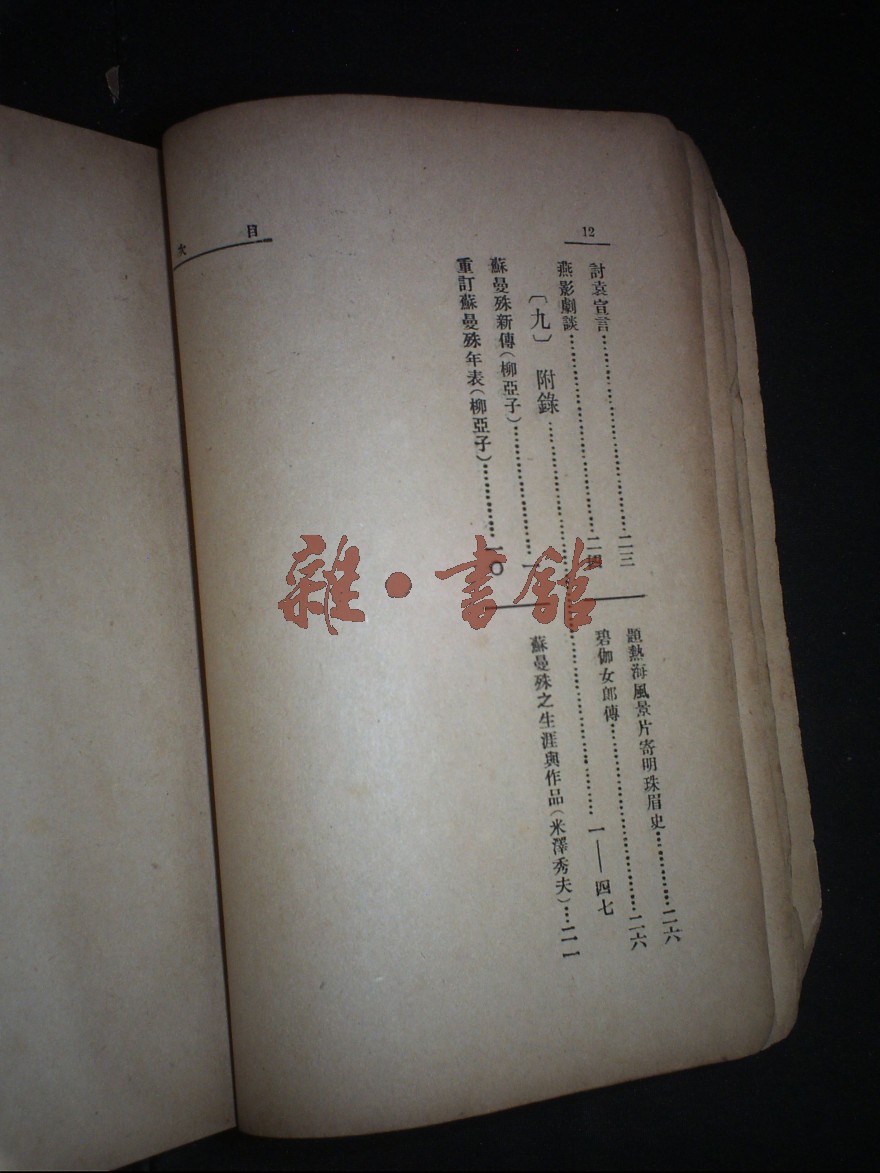 目次
12
討袁宣言……二三
燕影劇談……二四
〔九〕 附錄……一——四七
蘇曼殊新傳(柳亞子)……一
重訂蘇曼殊年表(柳亞子)……一〇
題熱海風景片寄明珠眉史……二六
碧伽女郎傳……二六
蘇曼殊之生涯與作品(米澤秀夫)……二一
雜·書館